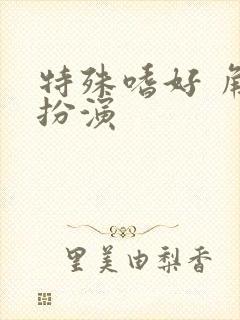 特殊嗜好 角
扮演
里美由梨香